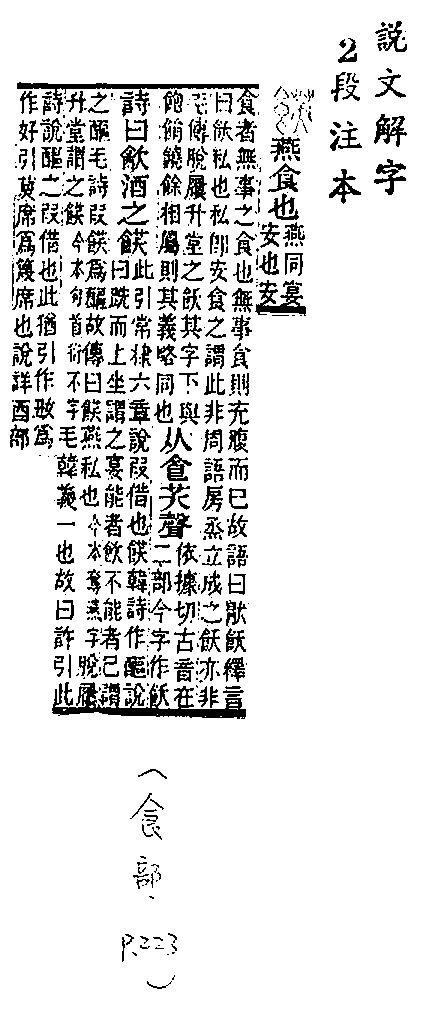 說文解字
2段注本
燕食也
燕同宴
安也安
食者無事之食也無事食則充腹而已故語曰猒飫釋言
曰飫私也私卽安食之謂此非周語房烝立成之飫亦非
毛傳脫屨升堂之飫其字下與
飽餇饒餘相屬則其義略同也
从食芺聲
依據切古音在
二部今字作飫
詩曰飮酒之䬶
此引常棣六章說叚借也䬶韓詩作醧說
曰跣而上坐謂之宴能者飮不能者已謂
之醧毛詩叚䬶爲醧故傳曰䬶燕私也今本奪燕字脫屨
升堂謂之䬶今本句首衍不字毛韓義一也故曰許引此
詩說醧之叚借也此猶引作爲
作好引莫席爲席也說詳酉部
(食部、P.223)